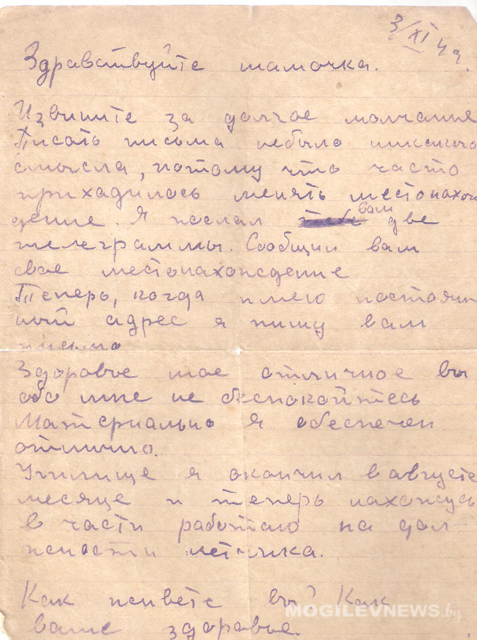 3/XI 4
Здравствуйте мамочка.
Извините за долгое молчание
Писать письма небыло никакого
смысла, потому что часто
приходилось менять местонахож
дение. Я послал вам две
телеграммы. Сообщил вам
свое местонахождение
Теперь, когда имею постоян
ный адрес я пишу вам
письмо
Здоровье мое отличное вы
обо мне не беспокойтесь
Материально я обеспечен
отлично.
Училище я окончил в августе
месяце и теперь нахожусь
в части работаю на дол
жности летчика.
Как живете вы? Как
ваше здоровье
MOGILEVNEWS.by